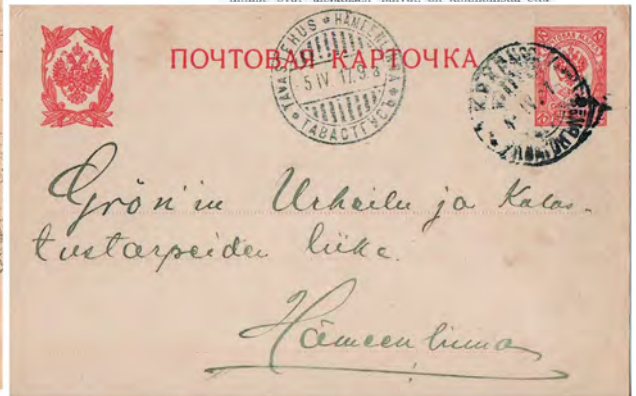 ПОЧТОВАЯ КАРТОЧКА
TAVASTEHUS * HÄMEENLINNA * ТАВАСТГУСЪ
5 IV 17. 9. 8
Grön'in Urheilu ja Kalas-
tustarpeiden liike.
Hämeenlinna